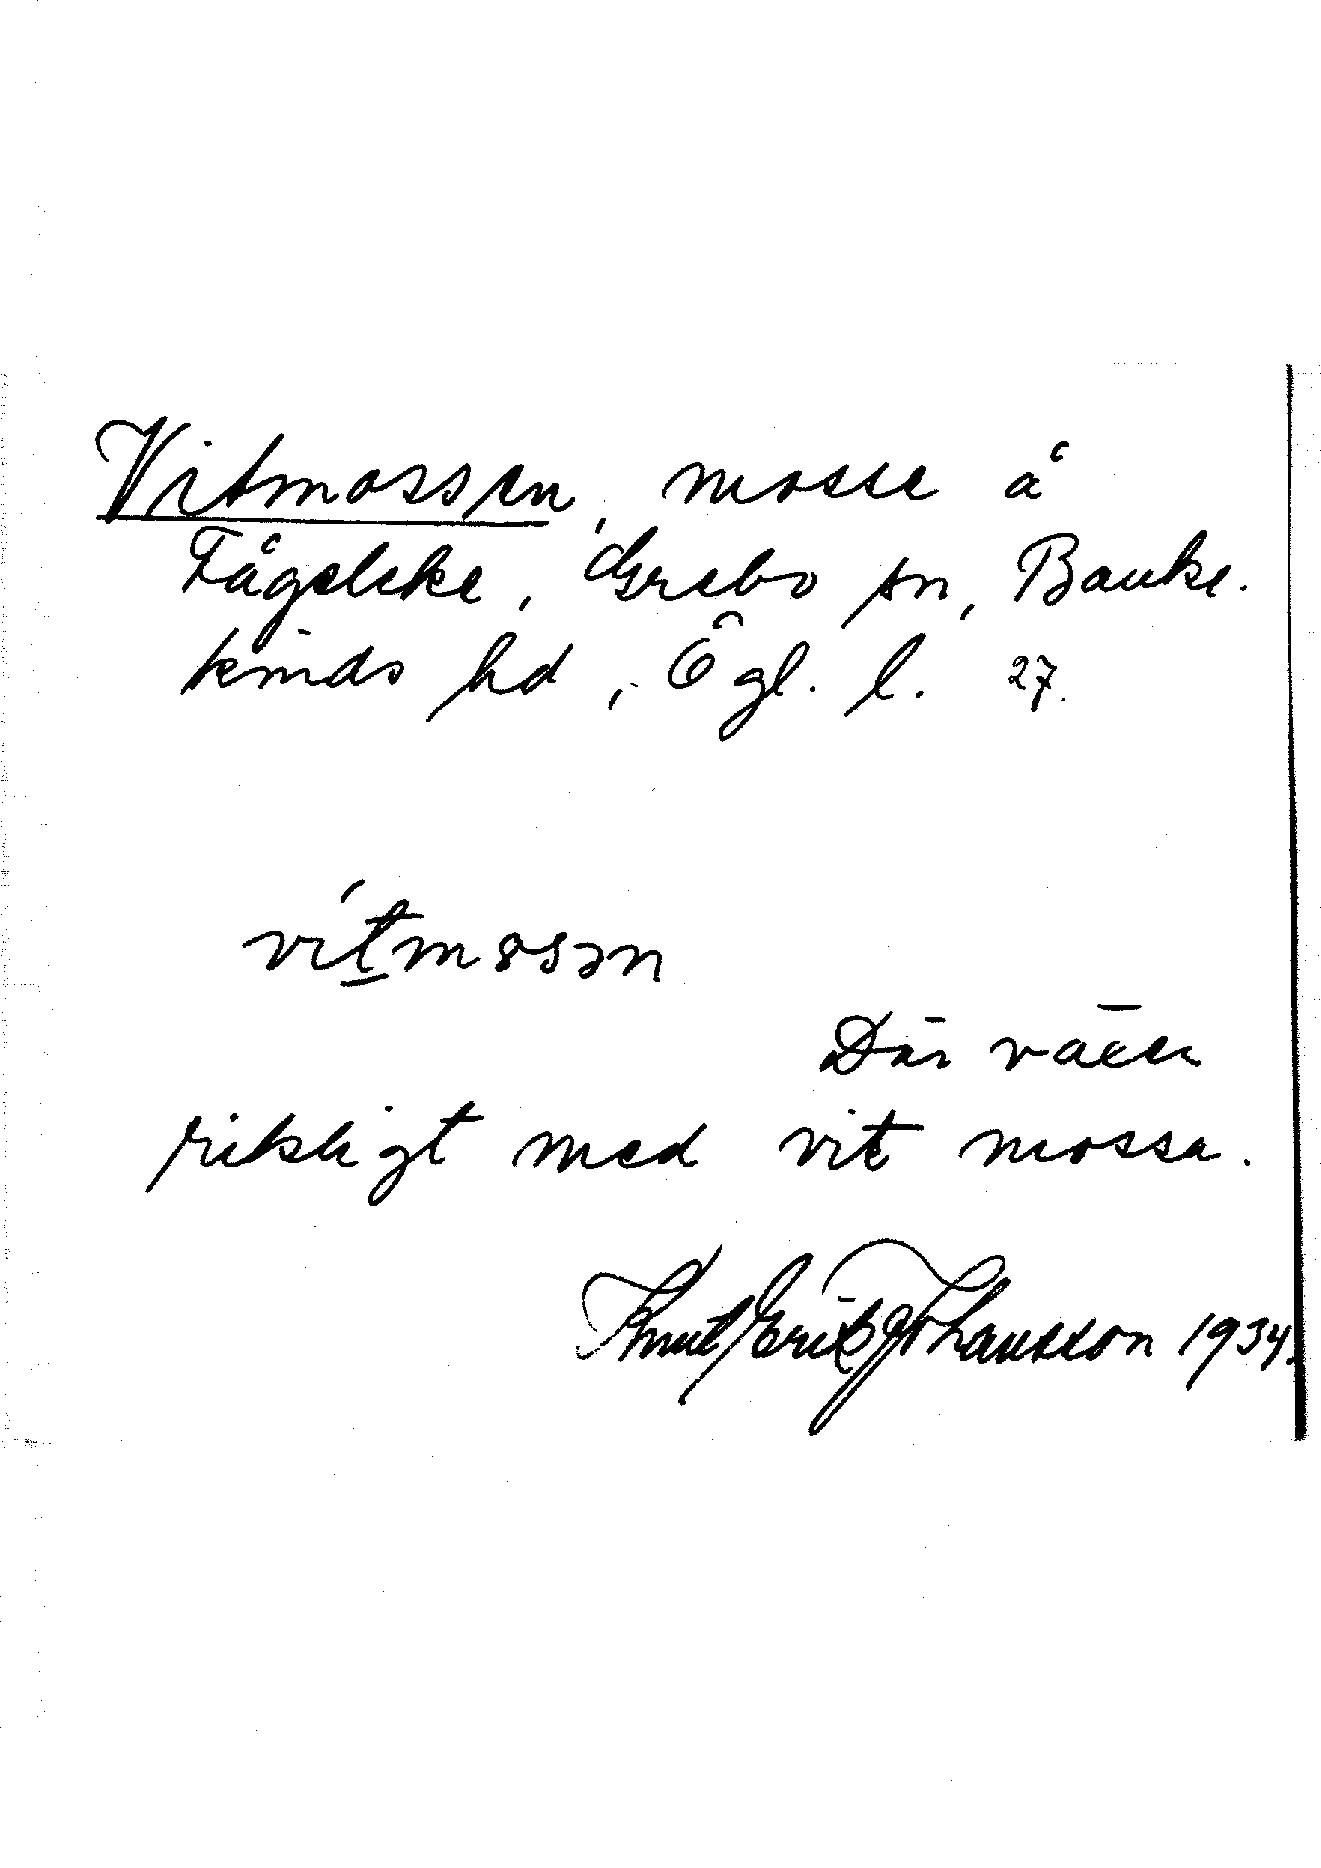 Vitmossen, mosse å
Fågeleke, Grebo sn, Banke-
kinds hd, Ögl. l. 27.
vít̲mɷsən
Där växer
rikligt med vit mossa.
Knut Erik Johansson 1934.